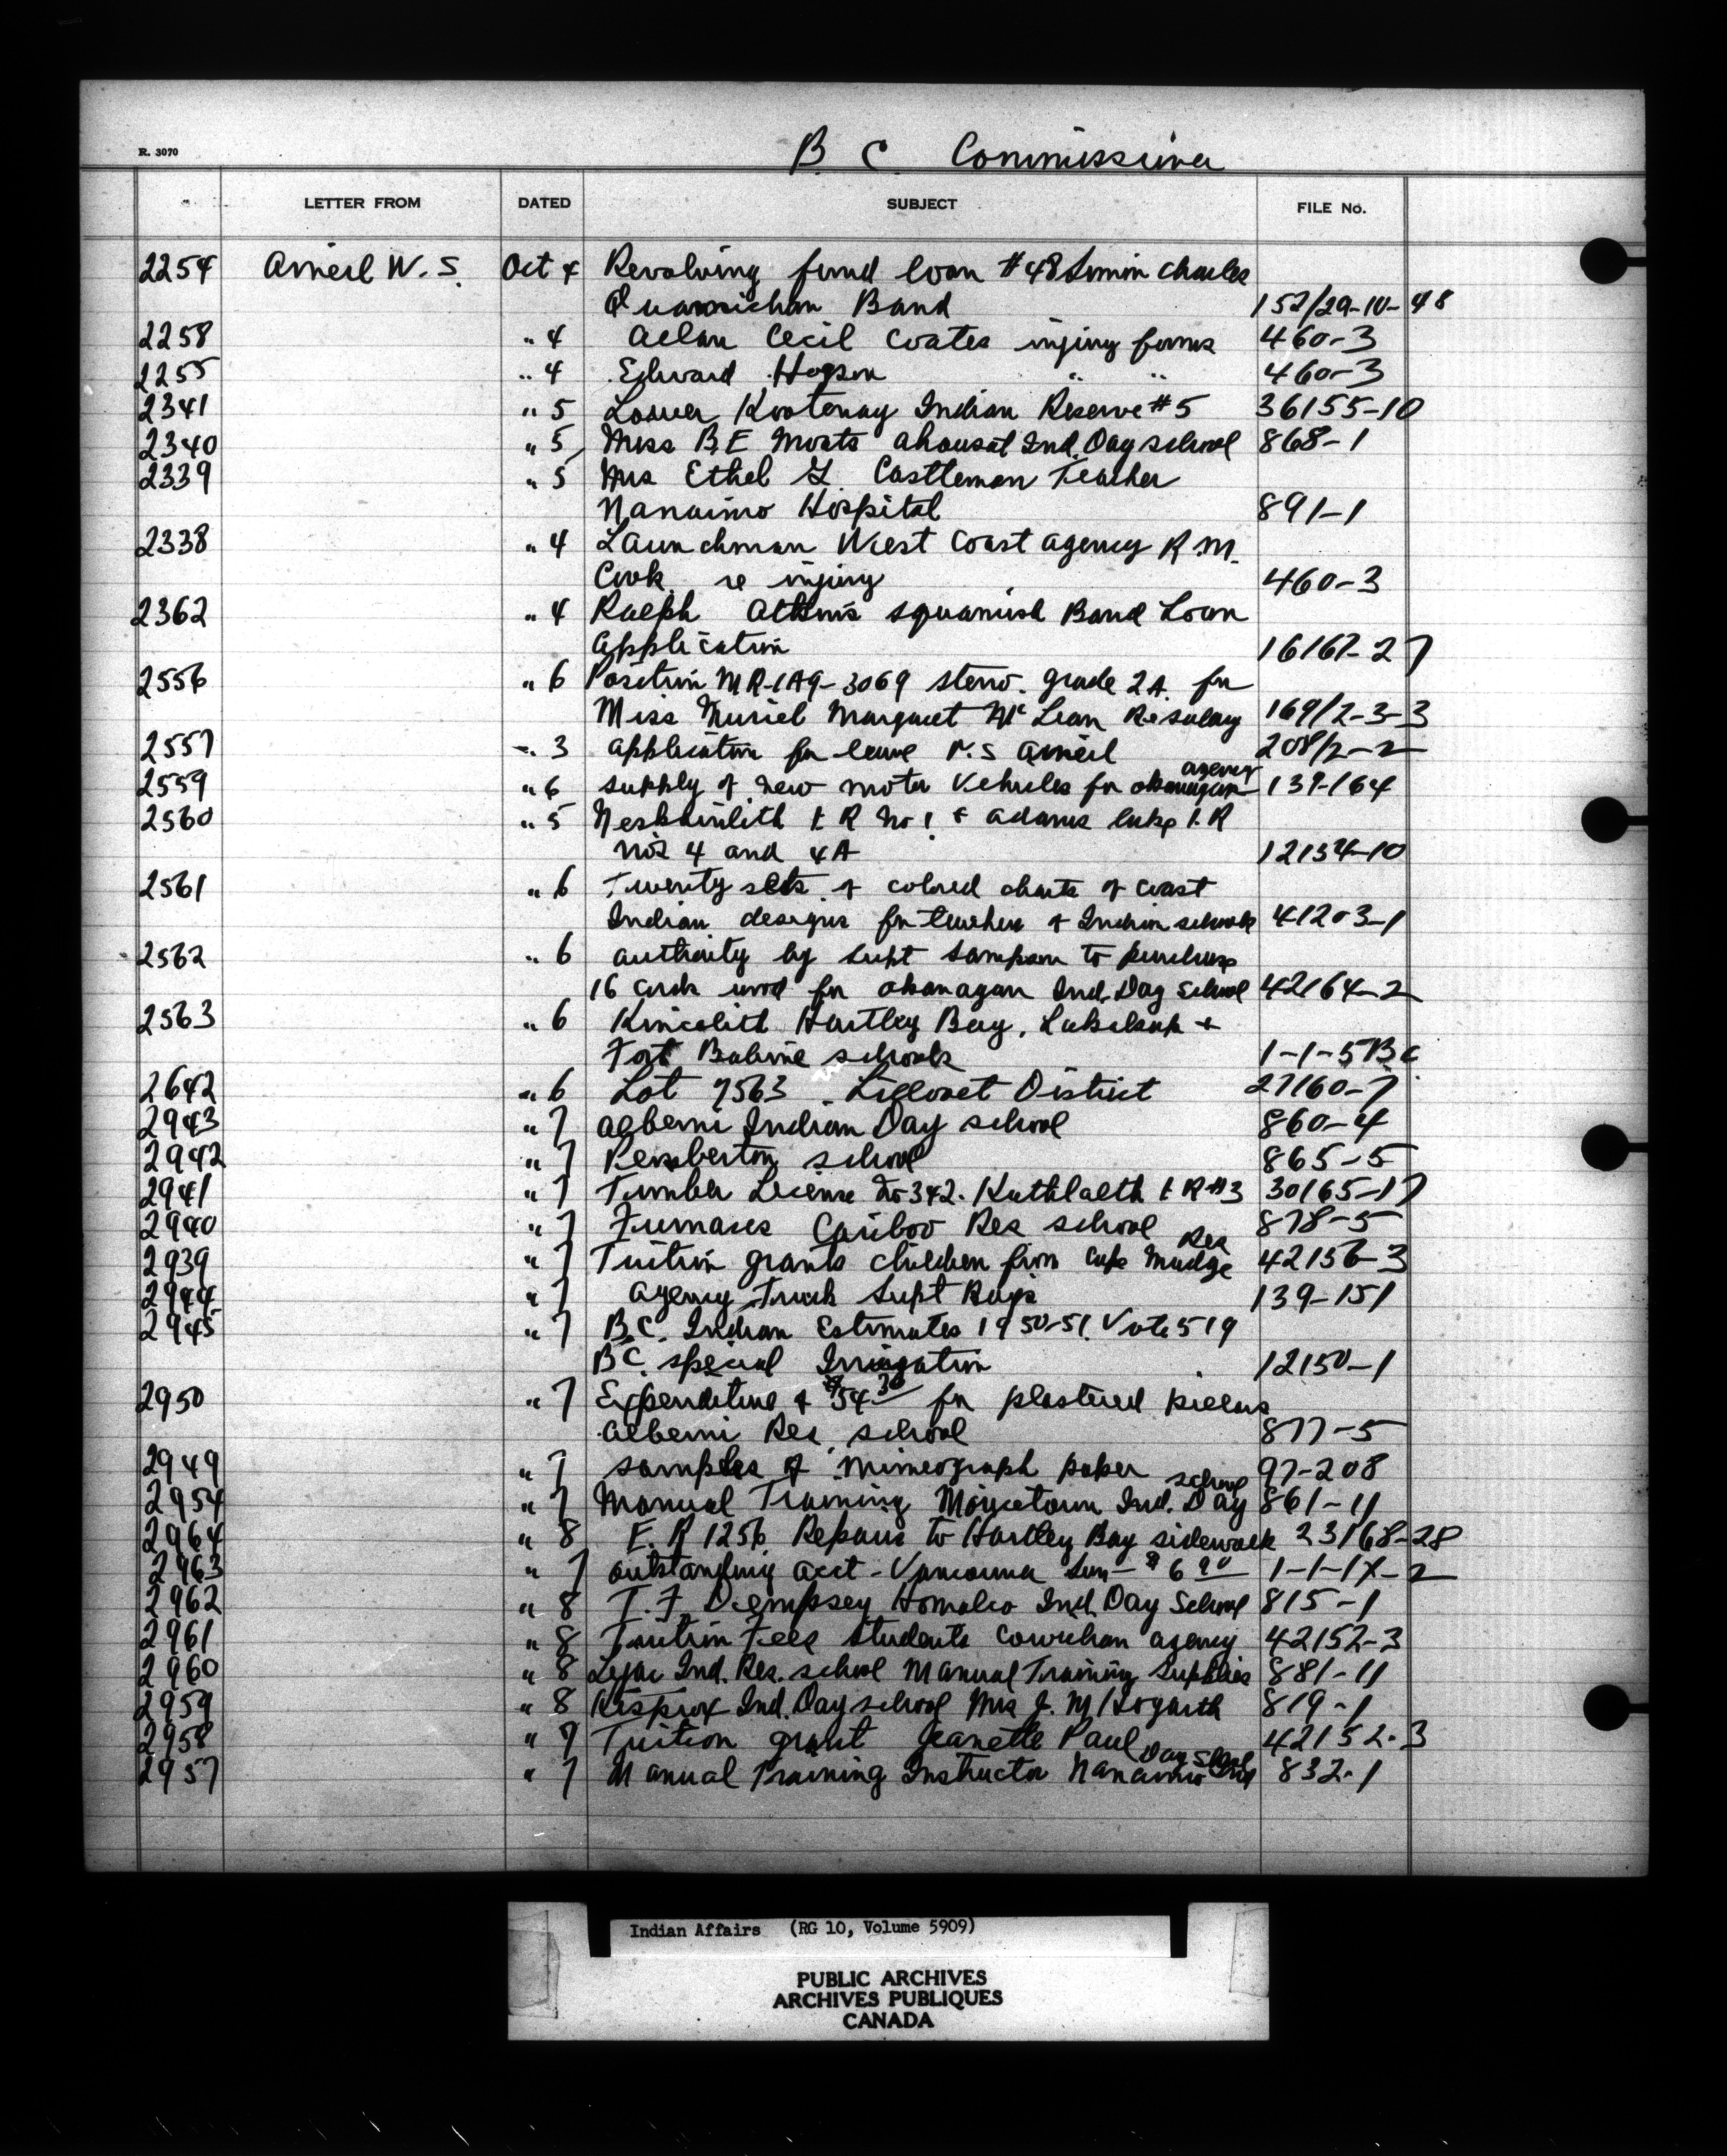 R. 3070
B. C. Commissioner
LETTER FROM DATED SUBJECT FILE No.
2254 Arneil W. S. Oct 4 Revolving fund loan #48 Simon Charles
Quamichan Band 152/29-10-48
2258 " 4 Allan Cecil Coates injury forms 460-3
2255 " 4 Edward Hogson " " 460-3
2341 " 5 Lower Kootenay Indian Reserve #5 36155-10
2340 " 5 Miss B. E. Ahousat Ind. Day school 868-1
2339 " 5 Mrs Ethel L. Castleman Teacher
Nanaimo Hospital 891-1
2338 " 4 Launchman West Coast Agency R. M.
Cook re injury 460-3
2362 " 4 Ralph Squamish Band Loan
Application 16167-27
2556 " 6 Position MR-1A9-3069 steno. grade 2A. for
Miss Muriel Margaret McLean Re salary 169/2-3-3
2557 " 3 application for leave W. S Arneil 208/2-2
2559 " 6 supply of new motor vehicles for Okanagan agency 139-164
2560 " 5 Neskainlith I. R No 1 & Adams Lake I. R
Nos 4 and 4A 12154-10
2561 " 6 Twenty sets of colored charts of Coast
Indian designs for teachers of Indian schools 41203-1
2562 " 6 authority by Supt Sampson to purchase
16 cords wood for Okanagan Ind. Day School 42164-2
2563 " 6 Kincolith Hartley Bay, Lakalsap +
Fort Babine schools 1-1-5 BC
2642 " 6 Lot 7563 - Lillooet District 27160-7
2943 " 7 Alberni Indian Day school 860-4
2942 " 7 Pemberton school 865-5
2941 " 7 Timber License No 342. Kuthlalth I R #3 30165-17
2940 " 7 Furnaces Cariboo Res school 878-5
2939 " 7 Tuition grants children from Cape Mudge Res 42156-3
2944 " 7 Agency Truck Supt 139-151
2945 " 7 B.C. Indian Estimates 1950-51. Vote 519
BC. special Irrigation 12150-1
2950 " 7 Expenditure of $54.30 for plastered
Alberni Res. school 877-5
2949 " 7 samples of mimeograph paper 97-208
2954 " 7 Manual Training Moricetown Ind. Day school 861-11
2964 " 8 E. R 1256 Repairs to Hartley Bay sidewalk 23168-28
2963 " 7 outstanding acct - Vancouver Sun - $6.90 1-1-17-2
2962 " 8 T. F. Dempsey Homalco Ind. Day School 815-1
2961 " 8 Tuition Fees students Cowichan agency 42152-3
2960 " 8 Lejac Ind. Res. school Manual Training Supplies 881-11
2959 " 8 Kispiox Ind. Day school Mrs J. M Hogarth 819-1
2958 " 7 Tuition grant Jeanette Paul 42152-3
2957 " 7 Manual Training Instructor Nanaimo Ind Day School 832-1
Indian Affairs (RG 10, Volume 5909)
PUBLIC ARCHIVES
ARCHIVES PUBLIQUES
CANADA